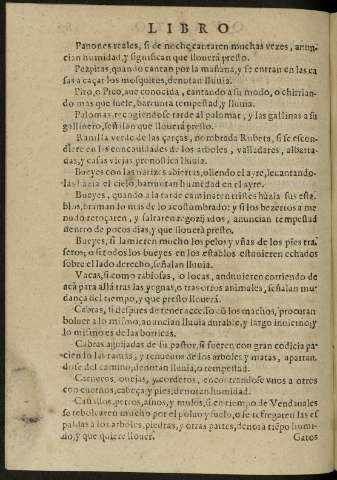 LIBRO
Pauones reales, si de noche cantaren muchas vezes, anun-
cian humidad, y significan que llouerá presto.
Pezpitas, quando cantan por la mañana, y se entran en las ca
sas a caçar los mosquitos, denotan lluuia.
Pito, o Pico, aue conocida, cantando a su modo, o chirrian-
do mas que suele, barrunta tempestad, y lluuia.
Palomas recogiendose tarde al palomar, y las gallinas a su
gallinero, señalan que llouerá presto.
Ranilla verde de las çarças, nombrada Rubeta, si se escon-
diere en las concauidades de los arboles, valladares, albarra-
das, y casas viejas, pronostica lluuia.
Bueyes con las narizes abiertas, oliendo el ayre, leuantando-
las hazia el cielo, barruntan humedad en el ayre.
Bueyes, quando a la tarde caminaren tristes hazia sus esta-
blos, bramando mas de lo acostumbrado: y si los bezerros a me-
nudo retoçaren, y saltaren regozijados, anuncian tempestad
dentro de pocos dias, y que llouerá presto.
Bueyes, si lamieren mucho los pelos y vñas de los pies tra-
seros; o si todos los bueyes en los establos estuuieren echados
sobre el lado derecho, señalan lluuia.
Vacas, si como rabiosas, o locas, anduuieren corriendo de
acá para allá tras las yeguas, o tras otros animales, señalan mu-
dança del tiempo, y que presto llouerá.
Cabras, si despues de tener accesso có los machos, procuran
boluer a lo mismo, anuncian lluuia durable, y largo inuierno; y
lo mismo es de las borricas.
Cabras aguijadas de su pastor, si fueren con gran codicia pa-
ciendo las ramas, y renueuos de los arboles y matas, apartan-
dose del camino, denotan lluuia, o tempestad.
Carneros, ouejas, y corderos, encontrandose vnos a otros
con cuernos, cabeça, y pies, denotan humidad.
Cauallos, perros, asnos, y mulos, si en tiempo de Vendauales
se rebolcaren mucho por el poluo y suelo, o se refregaren las es
paldas a los arboles, piedras, y otras partes, denota tiẽpo humi-
do, y que quiere llouer.
Gatos